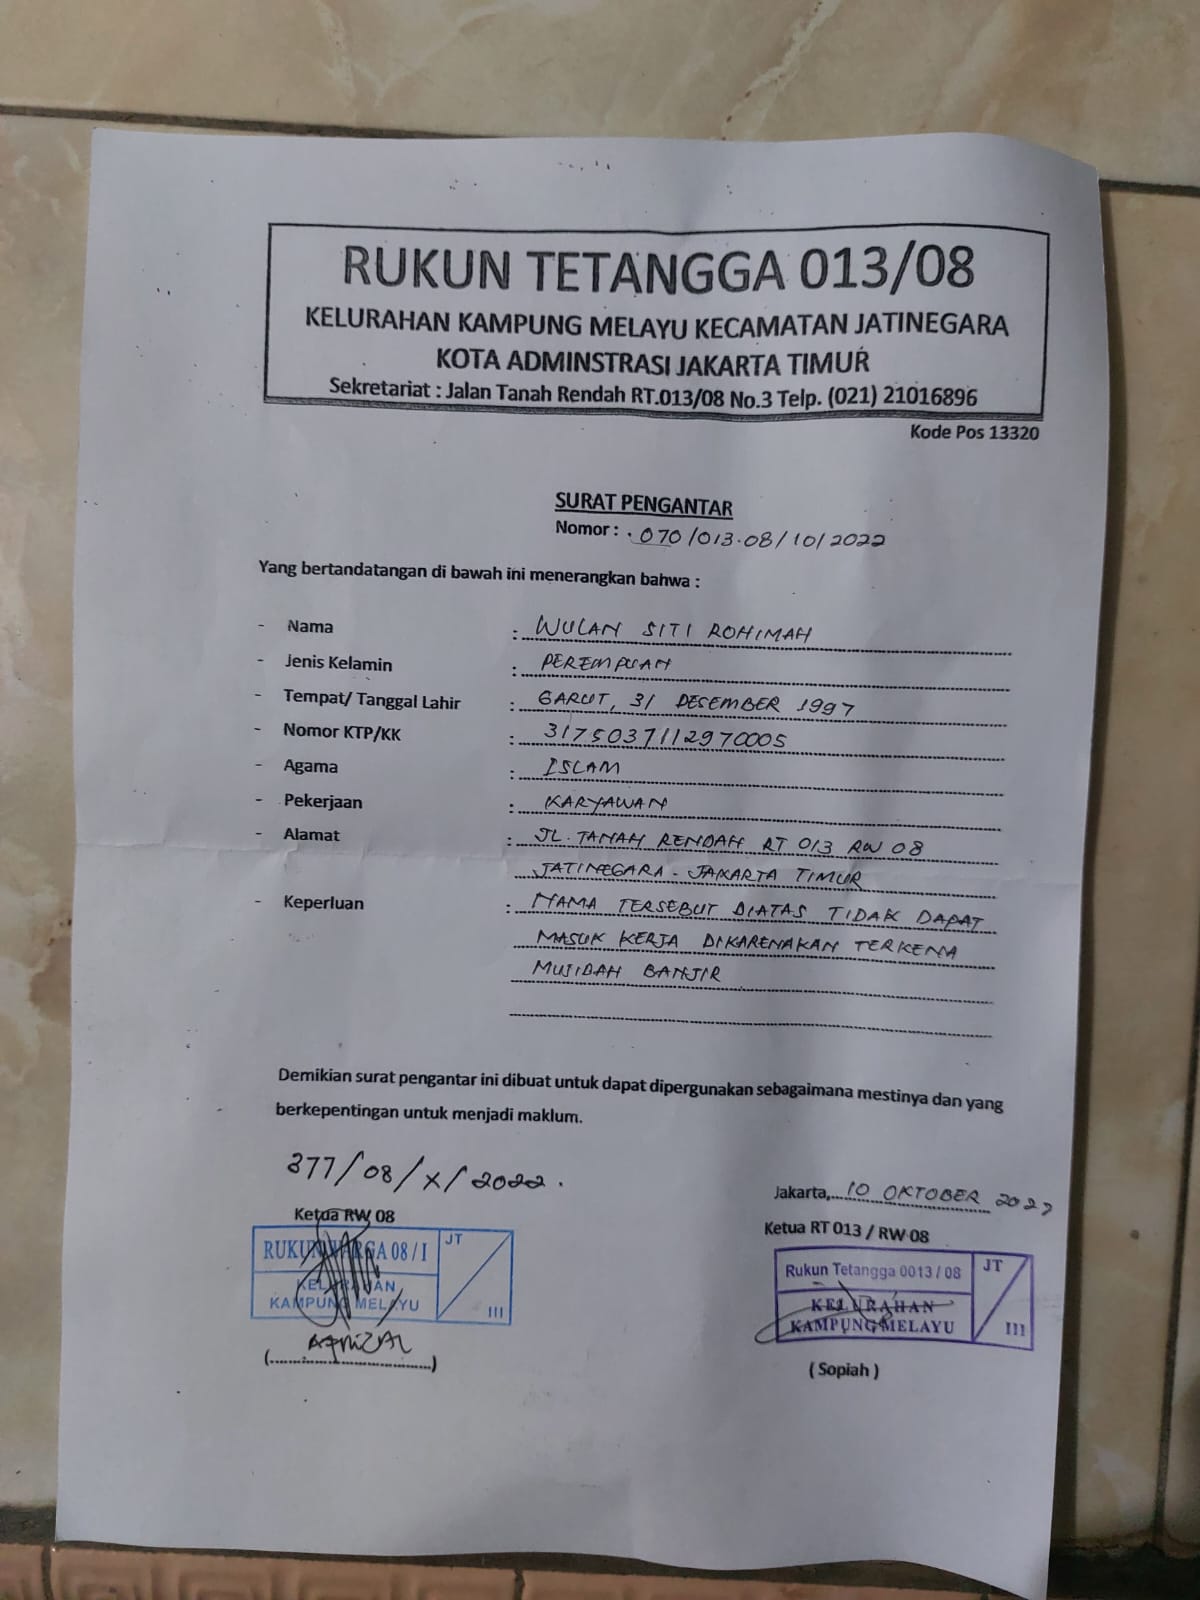 RUKUN TETANGGA 013/08
KELURAHAN KAMPUNG MELAYU KECAMATAN JATINEGARA
KOTA ADMINSTRASI JAKARTA TIMUR
Sekretariat : Jalan Tanah Rendah RT.013/08 No.3 Telp. (021) 21016896
Kode Pos 13320
SURAT PENGANTAR
Nomor : 070/013.08/10/2022
Yang bertandatangan di bawah ini menerangkan bahwa :
- Nama : WULAN SITI ROHIMAH
- Jenis Kelamin : PEREMPUAN
- Tempat/ Tanggal Lahir : GARUT, 31 DESEMBER 1997
- Nomor KTP/KK : 3175037112970005
- Agama : ISLAM
- Pekerjaan : KARYAWAN
- Alamat : JL. TANAH RENDAH RT 013 RW 08
JATINEGARA - JAKARTA TIMUR
- Keperluan : NAMA TERSEBUT DIATAS TIDAK DAPAT
MASUK KERJA DIKARENAKAN TERKENA
MUSIBAH BANJIR
Demikian surat pengantar ini dibuat untuk dapat dipergunakan sebagaimana mestinya dan yang
berkepentingan untuk menjadi maklum.
377/08/X/2022.
Jakarta, 10 OKTOBER 2022
Ketua RW 08
Ketua RT 013 / RW 08
RUKUN WARGA 08 / I
KELURAHAN
KAMPUNG MELAYU
JT
III
Rukun Tetangga 0013 / 08
KELURAHAN
KAMPUNG MELAYU
JT
III
( Sopiah )